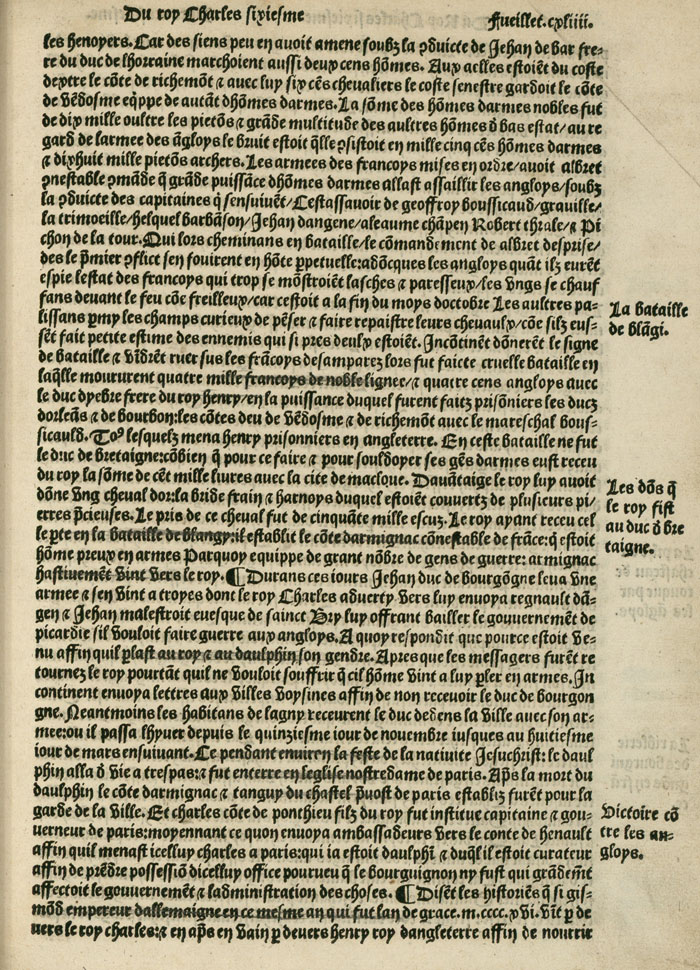 Du roy Charles sixiesme
Fueillet.cxliiii.
les henoyers. Car des siens peu en auoit amene soubz la ꝯduicte de Jehan de bar fre-
re du duc de lhorraine marchoient aussi deux cens hõmes. Aux aelles estoiẽt du coste
dextre le cõte de richemõt ⁊ auec luy six cẽs cheualiers le coste senestre gardoit le cõte
de vẽdosme eqppe de autãt dhõmes darmes. La sõme des hõmes darmes nobles fut
de dix mille oultre les pietõs ⁊ grãde multitude des aultres hõmes d̕ bas estat/au re
gard de larmee des ãgloys le bruit estoit q̃lle ꝯsistoit en mille cinq cẽs hõmes darmes
⁊ dixhuit mille pietõs archers. Les armees des francoys mises en ordre/auoit albret
ꝯnestable ꝯmãde q̃ grãde puissãce dhõmes darmes allast assaillir les angloys/soubz
la ꝯduicte des capitaines q̃ sensuiuẽt/Cestassauoir de geoffroy boussicaud/grauille/
la trimoeille/helquel barbãson/Jehan dangene/aleaume chãpen Robert thrale/⁊ Pi
chon de la tour. Qui lors cheminans en bataille/le cõmandement de albret desprise/
des le p̃mier ꝯflict sen fouirent en hõte ꝑpetuelle:adõcques les angloys quãt ilz eurẽt
espie lestat des francoys qui trop se mõstroiẽt lasches ⁊ paresseux/les vngs se chauf
fans deuant le feu cõe freilleux/car cestoit a la fin du moys doctobre Les aultres pa-
lissans ꝑmy les champs curieux de pẽser ⁊ faire repaistre leurs cheuaulx/cõe silz eus-
sẽt fait petite estime des ennemis qui si pres deulx estoiẽt. Incõtinẽt dõnerẽt le signe
de bataille ⁊ vĩdrẽt ruer sus les frãcoys desemparez lors fut faicte cruelle bataille en
laq̃lle moururent quatre mille francoys de noble lignee/⁊ quatre cens angloys auec
le duc dyebre frere du roy henry/en la puissance duquel furent faitz prisõniers les ducz
dorleãs ⁊ de bourbon:les cõtes deu de vẽdosme ⁊ de richemõt auec le mareschal bous-
sicauld. Toꝰ lesquelz mena henry prisonniers en angleterre. En ceste bataille ne fut
le duc de bretaigne:cõbien q̃ pour ce faire ⁊ pour souldoyer ses gẽs darmes eust receu
du roy la sõme de cẽt mille liures auec la cite de macloue. Dauãtaige le roy luy auoit
dõne vng cheual dor:la bride frain ⁊ harnoys duquel estoiẽt couuertz de plusieurs pi/
erres p̃cieuses. Le pris de ce cheual fut de cinquãte mille escuz. Le roy ayant receu cel
le ꝑte en la bataille de blangy:il establit le cõte darmignac cõnestable de frãce:q̃ estoit
hõme preux en armes Parquoy equippe de grant nõbre de gens de guerre:armignac
hastiuemẽt vint vers le roy. ¶ Durans ces iours Jehan duc de bourgõgne leua vne
armee ⁊ sen vint a troyes dont le roy Charles aduerty vers luy enuoya regnault dã-
gen ⁊ Jehan malestroit euesque de sainct Bry luy offrant bailler le gouuernemẽt de
picardie sil vouloit faire guerre aux angloys. A quoy respondit que pource estoit ve-
nu affin quil ꝑlast au roy ⁊ au daulphin son gendre. Apres que les messagers furẽt re
tournez le roy pourtãt quil ne vouloit souffrir q̃ cil hõme vint a luy ꝑler en armes. In
continent enuoya lettres aux villes voysines affin de non receuoir le duc de bourgon
gne. Neantmoins les habitans de lagny receurent le duc dedens la ville auec son ar-
mee:ou il passa lhyuer depuis le quinziesme iour de nouembre iusques au huitiesme
iour de mars ensuiuant. Ce pendant enuiron la feste de la natiuite Jesuchrist: le daul
phin alla d̕ vie a trespas:⁊ fut enterre en leglise nostredame de paris. Ap̃s la mort du
daulphin le cõte darmignac ⁊ tanguy du chastel p̃uost de paris establiz furẽt pour la
garde de la ville. Et charles cõte de ponthieu filz du roy fut institue capitaine ⁊ gou-
uerneur de paris:moyennant ce quon enuoya ambassadeurs vers le conte de henault
affin quil menast icelluy charles a paris:qui ia estoit daulphĩ ⁊ duq̃l il estoit curateur
affin de prẽdre possessiõ dicelluy office pourueu q̃ le bourguignon ny fust qui grãdem̃t
affectoit le gouuernemẽt ⁊ ladministration des choses. ¶ Disẽt les historiẽs q̃ si gis-
mõd empereur dallemaigne en ce mesme an qui fut lan de grace.m.cccc.xvi.vĩt ꝑ de
uers le roy charles:⁊ en ap̃s en vain ꝑ deuers henry roy dangleterre affin de nourrir
La bataille
de blãgi.
Les dõs q̃
le roy fist
au duc d̕ bre
taigne.
Victoire cõ
tre les an-
gloys.